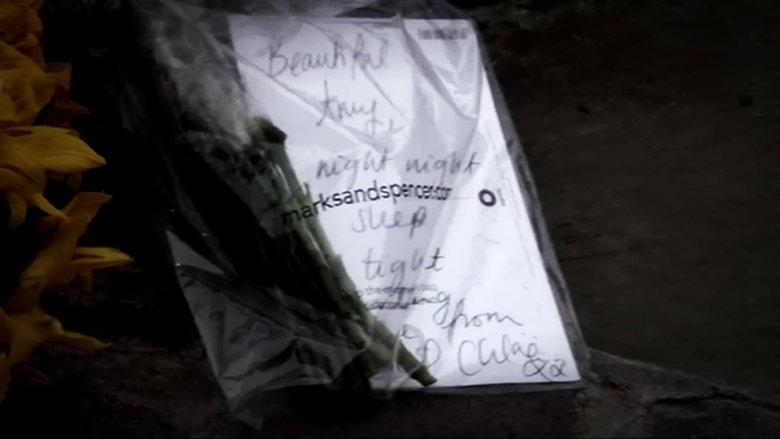 Beautiful
Amy,
night night
marksandspencer.com
sleep
tight
from